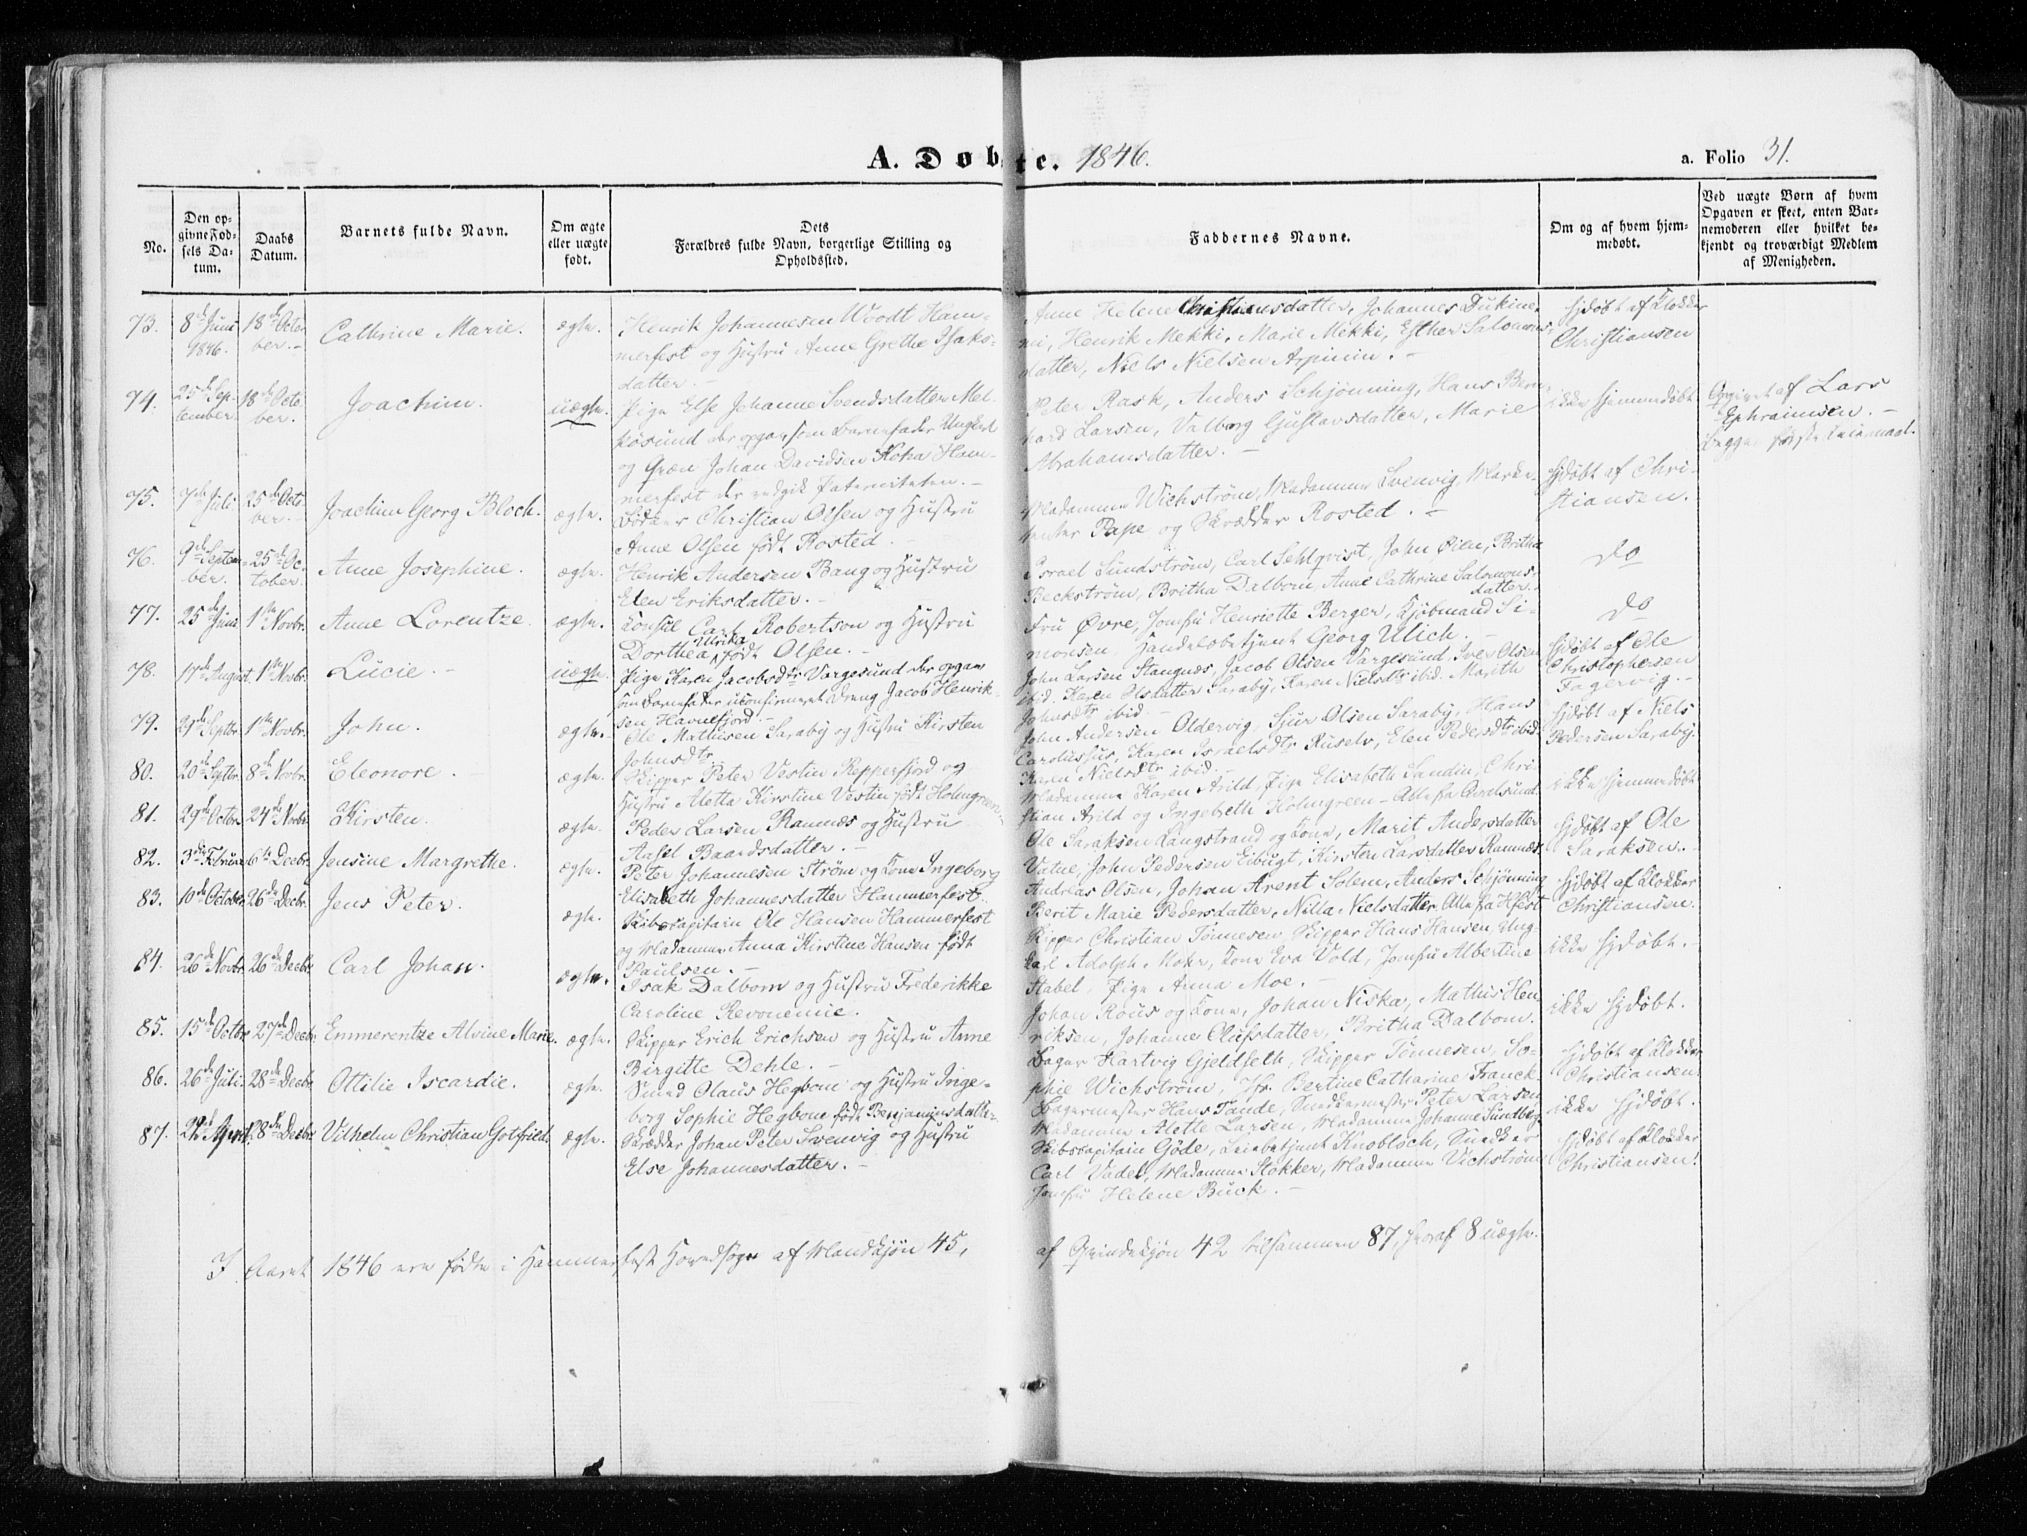 A. Døbte. 1846.
a. Folio 31.
No.
Den opgivne Fødsels Datum.
Daabs Datum.
Barnets fulde Navn.
Om ægte eller uægte født.
Dets Forældres fulde Navn, borgerlige Stilling og Opholdssted.
Faddernes Navne.
Om og af hvem hjemmedøbt.
Ved uægte Børn af hvem Opgaven er skeet, enten Barnemoderen eller hvilket bekjendt og troværdigt Medlem af Menigheden.
73. 8de Juni 1846. 18de October. Cathrine Marie. ægte.
Henrik Johannesen Woodt Ham-
merfest og Hustru Anne Grethe Isaks-
datter.
Anne Helene Christiansdatter, Johannes
Henrik Mekki, Marie Mekki, Esther Salomons-
datter, Niels Nielsen
Hjdøbt af Klokker
Christiansen
74. 25de September. 18de October. Joachim. uægte.
Pige Else Johanne Svendsdatter Mel-
køsund der opgav som Barnefader Ungkarl
og Qvæn Johan Davidsen Koha Ham-
merfest der vedgik Paterniteten.
Peter Rask, Anders Schjønning, Hans Bern-
hard Larsen, Valborg Gustavsdatter, Marie
Abrahamsdatter.
ikke hjemmedøbt
Opgivet af Lars
Ephraimsen.
begges første Leiermaal.
75. 7de Juli. 25de October. Joachim Georg Bloch. ægte.
Christian Olsen og Hustru
Anne Olsen født Rosted.
Madamme Wichstrøm, Madamme Svenvig,
Pape og Skrædder Rosted.
Hjdøbt af Chri-
stiansen.
76. 9de September. 25de October. Anne Josephine. ægte.
Henrik Andersen Bang og Hustru
Elen Eriksdatter.
Israel Sundstrøm, Carl Sehlqvist, John Øien, Britha
Beckstrøm, Britha Dalbom, Anne Cathrine Salomons-
datter.
Do
77. 25de Juni 1ste Novbr. Anne Lorentze. ægte.
Consul Carl Robertson og Hustru
Dorthea Ulrika født Olsen.
Fru Øvre, Jomfru Henriette Berger, Kjøbmand Si-
monsen, Handelsbetjent Georg Ulich.
Do
78. 17de August. 1ste Novbr. Lucie. uægte.
Pige Karen Jacobsdtr Vargesund der opgav
som Barnefader uconfirmeret Dreng Jacob Henrik-
sen Havnefjord.
John Larsen Stangnæs, Jacob Olsen Vargesund, Iver Olsen
ibid. Karen Olsdatter Saraby, Karen Nielsdtr ibid. Marith
Johnsdtr ibid.
Hjdøbt af Ole
Christophersen
Fagervig.
79. 27de Septbr. 1ste Novbr. John. ægte.
Ole Mathisen Saraby og Hustru Kirsten
Johnsdtr
John Andersen Oldervig, Sjur Olsen Saraby, Hans
Carolussus, Karen Israelsdtr Kuselv, Elen Pedersdtr ibid.
Karen Nielsdtr ibid.
Hjdøbt af Niels
Pedersen Saraby.
80. 20de Septbr. 8de Novbr. Eleonore. ægte.
Skipper Peter Vestin Repperfjord og
Hustru Aletta Kirstine Vestin født Holmgreen.
Madamme Karen Arild, Pige Elisabeth Sandin, Chri-
stian Arild og Ingebreth Holmgreen - Alle fra Qvalsund
ikke hjemmedøbt
81. 29de Octbr. 24de Novbr. Kirsten. ægte.
Peder Larsen Ramnæs og Hustru
Baardsdatter.
Ole Saraksen Langstrand og Kone, Marit Andersdatter
Vatne, John Pedersen Eibugt, Kirsten Larsdatter Ramnæs.
Hjdøbt af Ole
Saraksen.
82. 6te Decbr. Jensine Margrethe. ægte.
Peter Johannesen Strøm og Kone Ingeborg
Elisabeth Johannesdatter Hammerfest.
Andreas Olsen, Johan Arent Solem, Anders Schjønning
Berit Marie Pedersdatter, Nilla Nielsdatter. Alle fra Hfest
Hjdøbt af Klokker
Christiansen.
83. 10de October. 26de Decbr. Jens Peter. ægte.
Skibscapitain Ole Hansen Hammerfest
og Madamme Anna Kirstine Hansen født
Paulsen.
Skipper Christian Tønnesen, Skipper Hans Hansen, Ung-
karl Adolph Mohr, Kone Eva Vold, Jomfru Albertine
Stabel, Pige Anna Moe.
ikke hjdøbt.
84. 26de Novbr. 26de Decbr. Carl Johan. ægte.
Isak Dalbom og Hustru Frederikke
Caroline
Johan Roos og Kone, Johan Niska, Mathis Hen-
riksen, Johanne Olufsdatter, Britha Dalbom.
ikke hjdøbt.
85. 15de Octbr. 27de Decbr. Emmerentze Alvine Marie. ægte.
Skipper Erich Erichsen og Hustru Anne
Birgitte Dehle.
Bager Hartvig Gjeldseth, Skipper Tønnesen, So-
phie Wichstrøm, Bertine Catharine Franck
Hjdøbt af Klokker
Christiansen.
86. 26de Juli. 28de Decbr. Ottilie Iscardie. ægte.
Smed Olaus Hegbom og Hustru Inge-
borg Sophie Hegbom født Benjaminsdatter
Bagermester Hans Tande, Snedkermester Peter Larsen
Madamme Alette Larsen, Madamme Johanne Sundberg
ikke hjdøbt.
87. 28de Decbr. Vilhelm Christian Gotfried. ægte.
Skrædder Johan Peter Svenvig og Hustru
Else Johannesdatter.
Skibscapitain Gjøde, Knobloch, Snedker
Carl Vadel, Madamme Stokker, Madamme Vichstrøm
Jomfru Helene Buck.
Hjdøbt af Klokker
Christiansen!
I Aaret 1846 ere fødte i Hammerfest Hovedsogn af Mandkjøn 45, af Qvindekjøn 42 tilsammen 87, heraf 8 uægte.